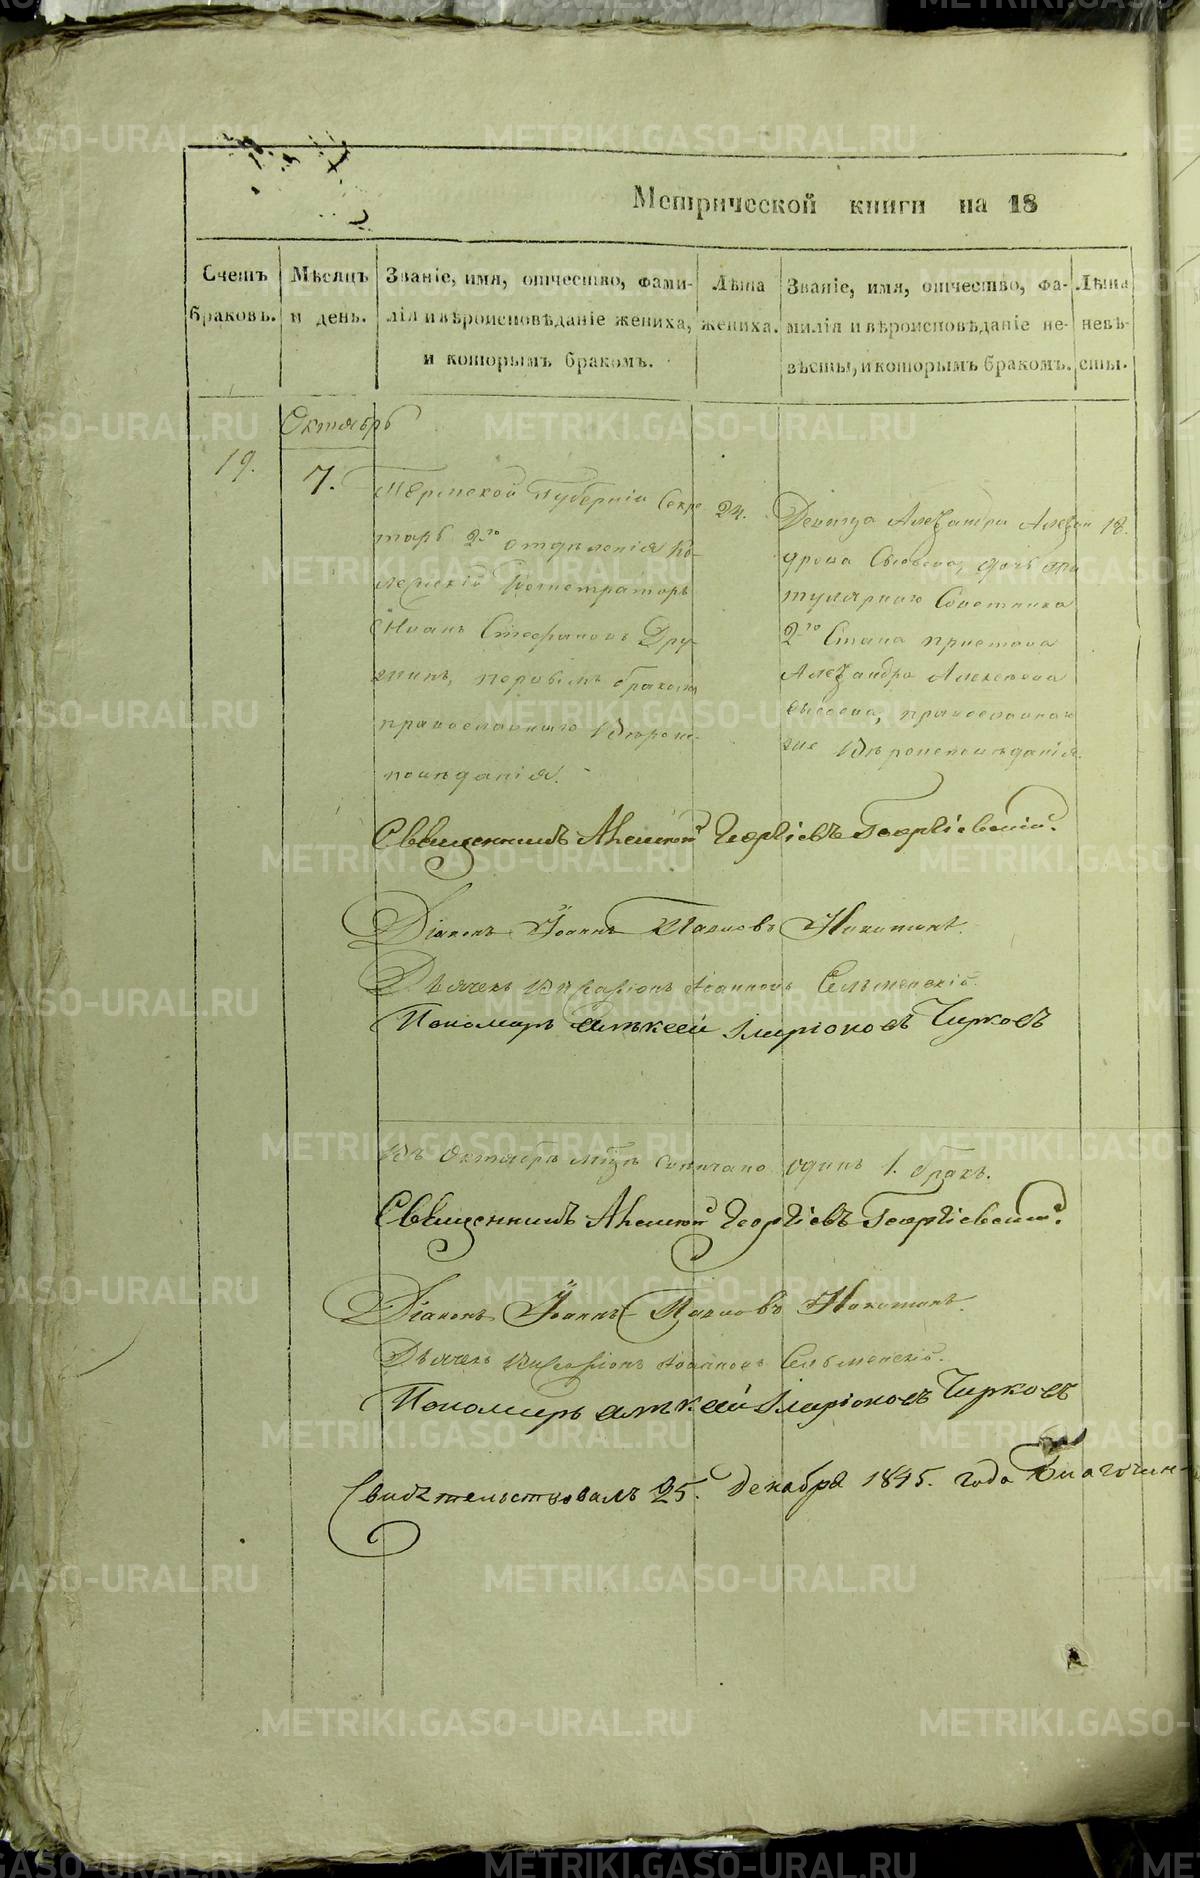 Метрической книги на 18
Счетъ браковъ.
Мѣсяцъ и день.
Званіе, имя, отчество, фами-
лія и вѣроисповѣданіе жениха,
и которымъ бракомъ.
Лѣта жениха.
Званіе, имя, отчество, фа-
милія и вѣроисповѣданіе не-
вѣсты, и которымъ бракомъ.
Лѣта невѣ-
сты.
Октябрь
19.
7.
Пермской Губерніи Секре
тарь 2го отдѣленія Ко-
лежскій Регистраторъ
Иванъ Стефановъ Дру-
жининъ, первымъ бракомъ
православнаго Вѣроис-
повѣданія.
24.
Девица Александра Алексан
дрова Сысоева, дочь Ти
тулярнаго Советника
2го Стана пристава
Александра Алексеева
Сысоева, православнаго
Вѣроисповѣданія.
18.
Священникъ Алексій Георгіевъ Георгіевскій.
Діаконъ Іоаннъ Павловъ Никитинъ.
Дьячекъ Виссаріонъ Іоанновъ Сельменскій.
Пономарь Алѣксей Иларіоновъ Чирковъ
Въ Октябрѣ мцѣ сочитано одинъ 1. бракъ.
Священникъ Алексій Георгіевъ Георгіевскій.
Діаконъ Іоаннъ Павловъ Никитинъ.
Дьячекъ Виссаріонъ Іоанновъ Сельменскій.
Пономарь Алѣксей Иларіоновъ Чирковъ
Свидѣтельствовалъ 25. Декабря 1845. года Благочин-
METRIKI.GASO-URAL.RU